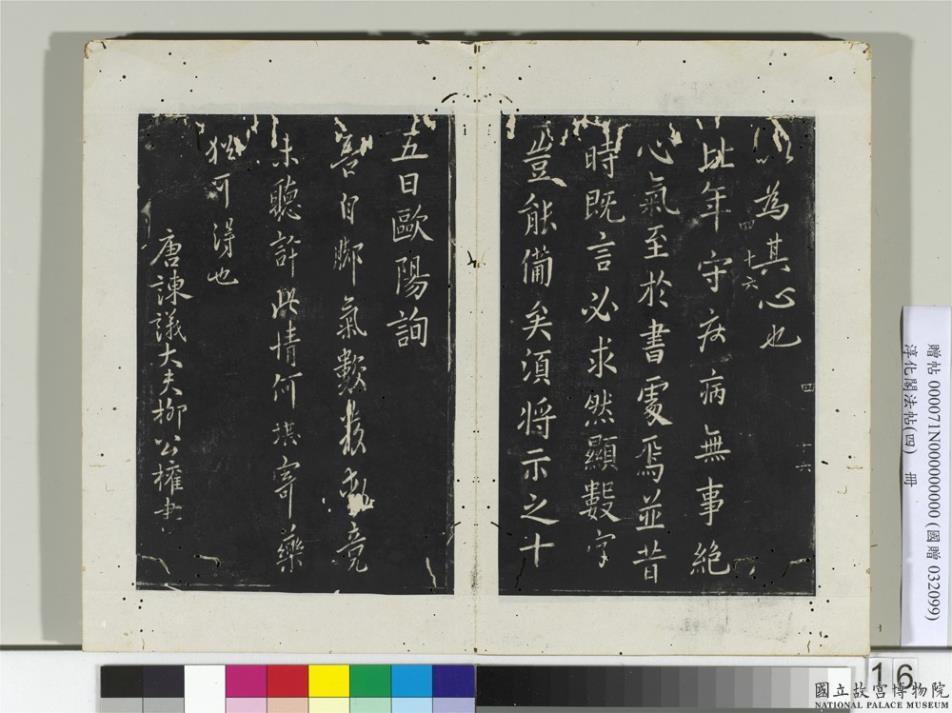 以為其心也
四 十六
四 十六
比年守疾病無事絕
心氣至於書處焉並昔
時既言必求然顯數字
豈能備矣須将示之十
五日歐陽詢
吾自脚氣數發動竟
未聽許此情何堪寄藥
猶可得也
唐諫議大夫柳公權書
贈帖 000071N000000000 (國贈 032099)
淳化閣法帖(四) 冊
16
國立故宮博物院
NATIONAL PALACE MUSEUM